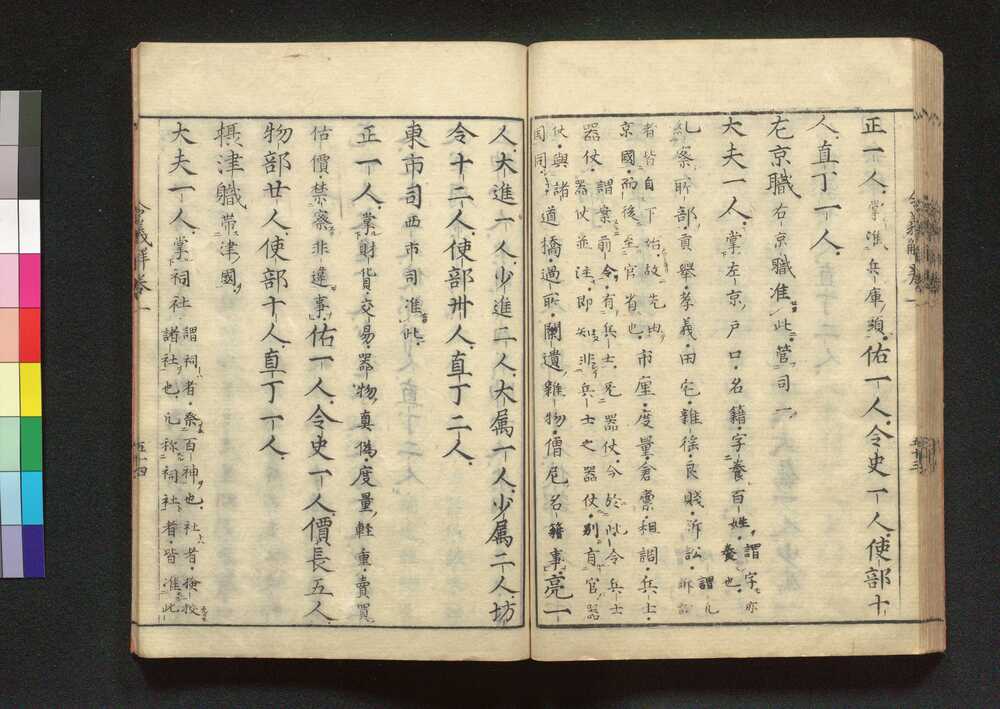 正一人。掌准兵庫頭。佑一人。令史一人。使部十
人。直丁一人。
左京職 右京職准此。管司一。
大夫一人。掌左京戸口名籍。字養百姓。謂。字亦養也。
糺察所部。貢擧。孝義。田宅。雜徭。良賤。訴訟。謂。凡訴訟
者。皆自下始。故先由京國。而後至官省也。市廛。度量。倉廩。租調。兵士。
器仗。謂。案前令。有兵士。无器仗。今於此令。兵士器仗並注。即知。非兵士之器仗。別有官器
仗。與諸國同。道橋。過所。闌遺雜物。僧尼名籍事。亮一
人。大進一人。少進二人。大属一人。少属二人。坊
令十二人。使部卅人。直丁二人。
東市司 西市司准此。
正一人。掌財貨交易。器物眞偽。度量輕重。賣買
估價。禁察非違事。佑一人。令史一人。價長五人。
物部廿人。使部十人。直丁一人。
摂津職 帶津國。
大夫一人。掌祠社。謂。祠者。祭百神也。社者。檢校諸社也。凡称祠社者。皆准此
令義解卷一
五十三
令義解卷一
五十四